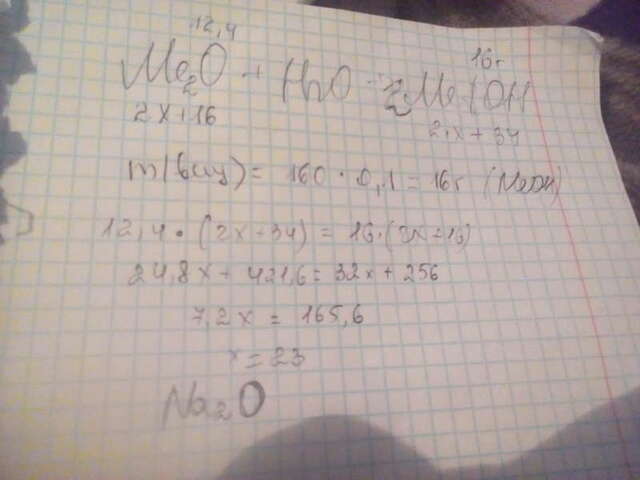 12,4 16г
Me₂O + H₂O → 2Me(OH
2x+16 2x+34
m(вещ) = 160 · 0,1 = 16г (MeOH)
12,4 · (2x+34) = 16·(2x+16)
24,8x + 421,6 = 32x + 256
7,2x = 165,6
x = 23
Na₂O